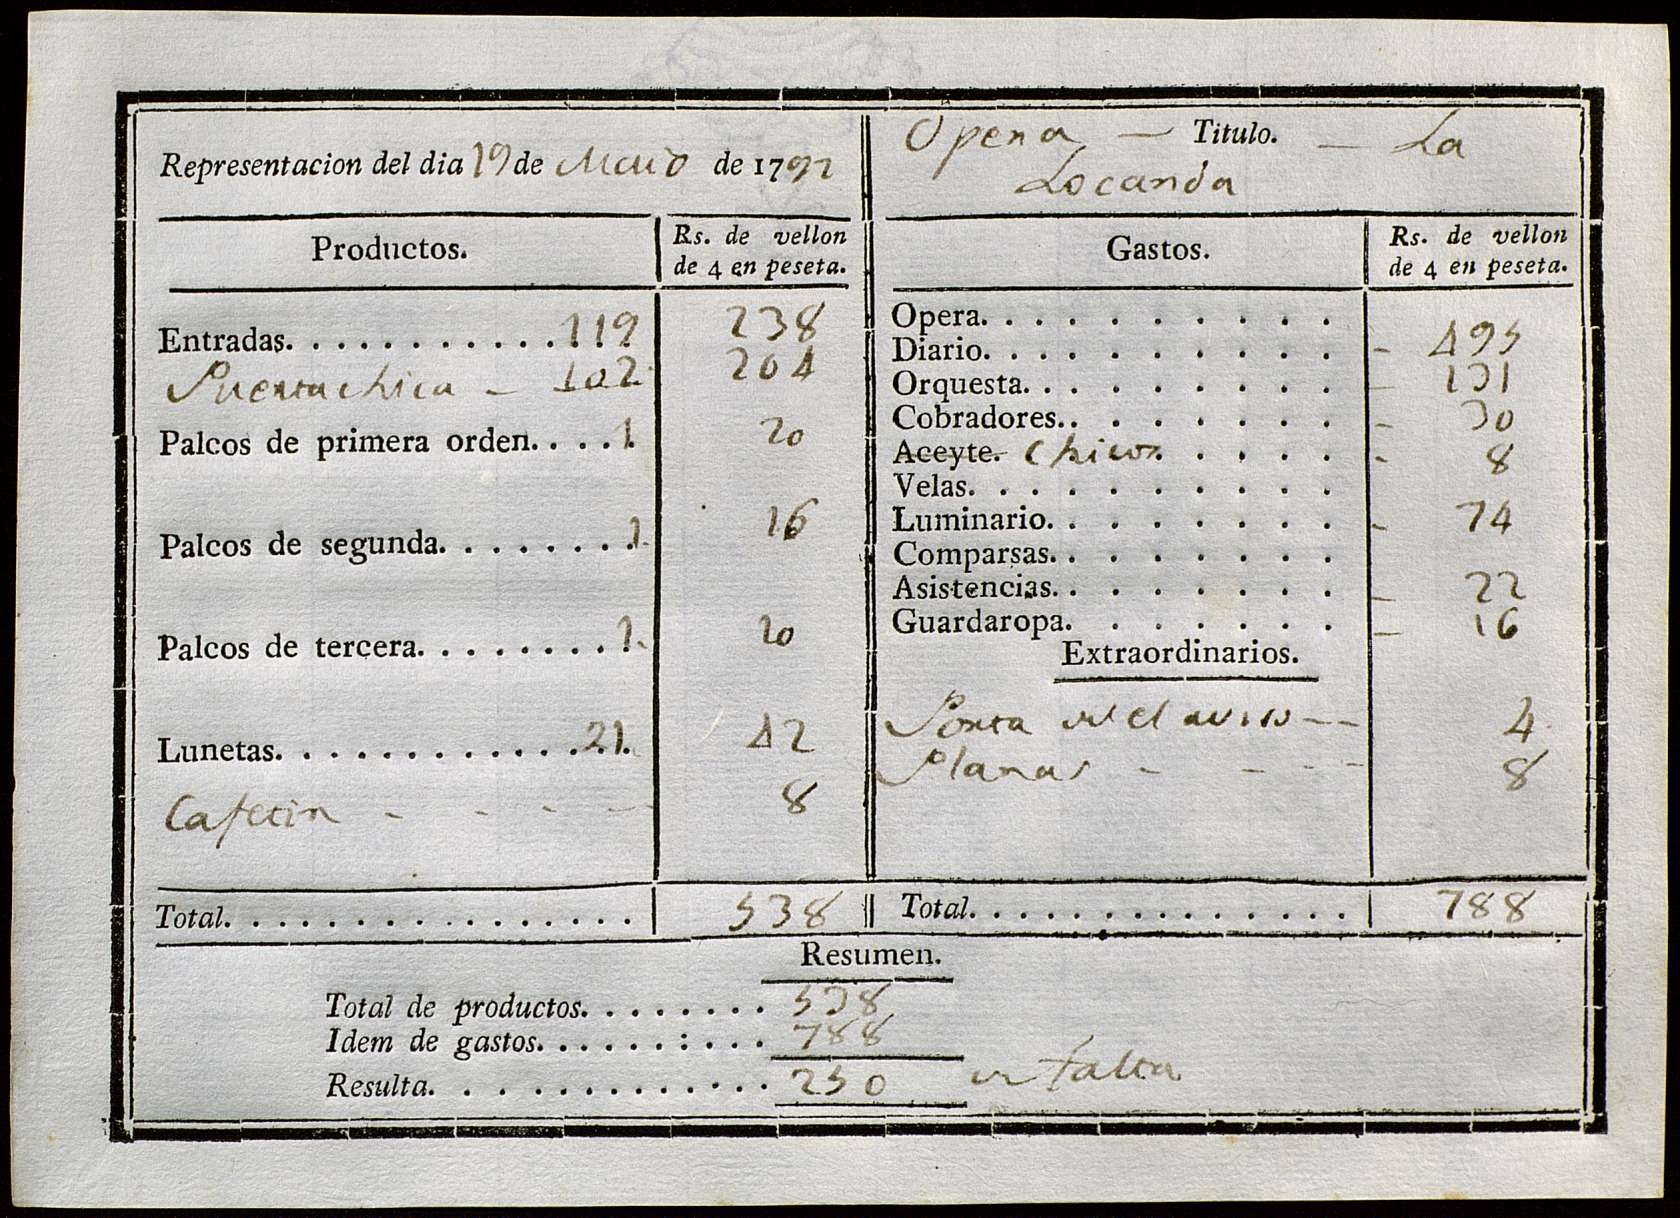 Representacion del dia 19 de Maio de 1792
Productos. Rs. de vellon
de 4 en peseta.
Entradas. . . . . . . . . . . . . 119 238
Puerta chica - 102 204
Palcos de primera orden. . . . 1. 20
Palcos de segunda. . . . . . . . 1. 16
Palcos de tercera. . . . . . . . . 1. 10
Lunetas. . . . . . . . . . . . . . 21. 42
Cafetin - - - - 8
Total. . . . . . . . . . . . . . . . . 538
Opera — Titulo. — La
Locanda
Gastos. Rs. de vellon
de 4 en peseta.
Opera. . . . . . . . . .
Diario. . . . . . . . . . - 495
Orquesta. . . . . . . . . - 131
Cobradores. . . . . . . . - 30
Aceyte. Chicos . . . . . - 8
Velas. . . . . . . . . .
Luminario. . . . . . . . - 74
Comparsas. . . . . . . .
Asistencias. . . . . . . . - 22
Guardaropa. . . . . . . - 16
Extraordinarios.
Porta del aviso - - 4
Planas - - - - 8
Total. . . . . . . . . . . . . . . 788
Resumen.
Total de productos. . . . . . . . 538
Idem de gastos. . . . . . : . . . 788
Resulta. . . . . . . . . . . . . 250 de falta